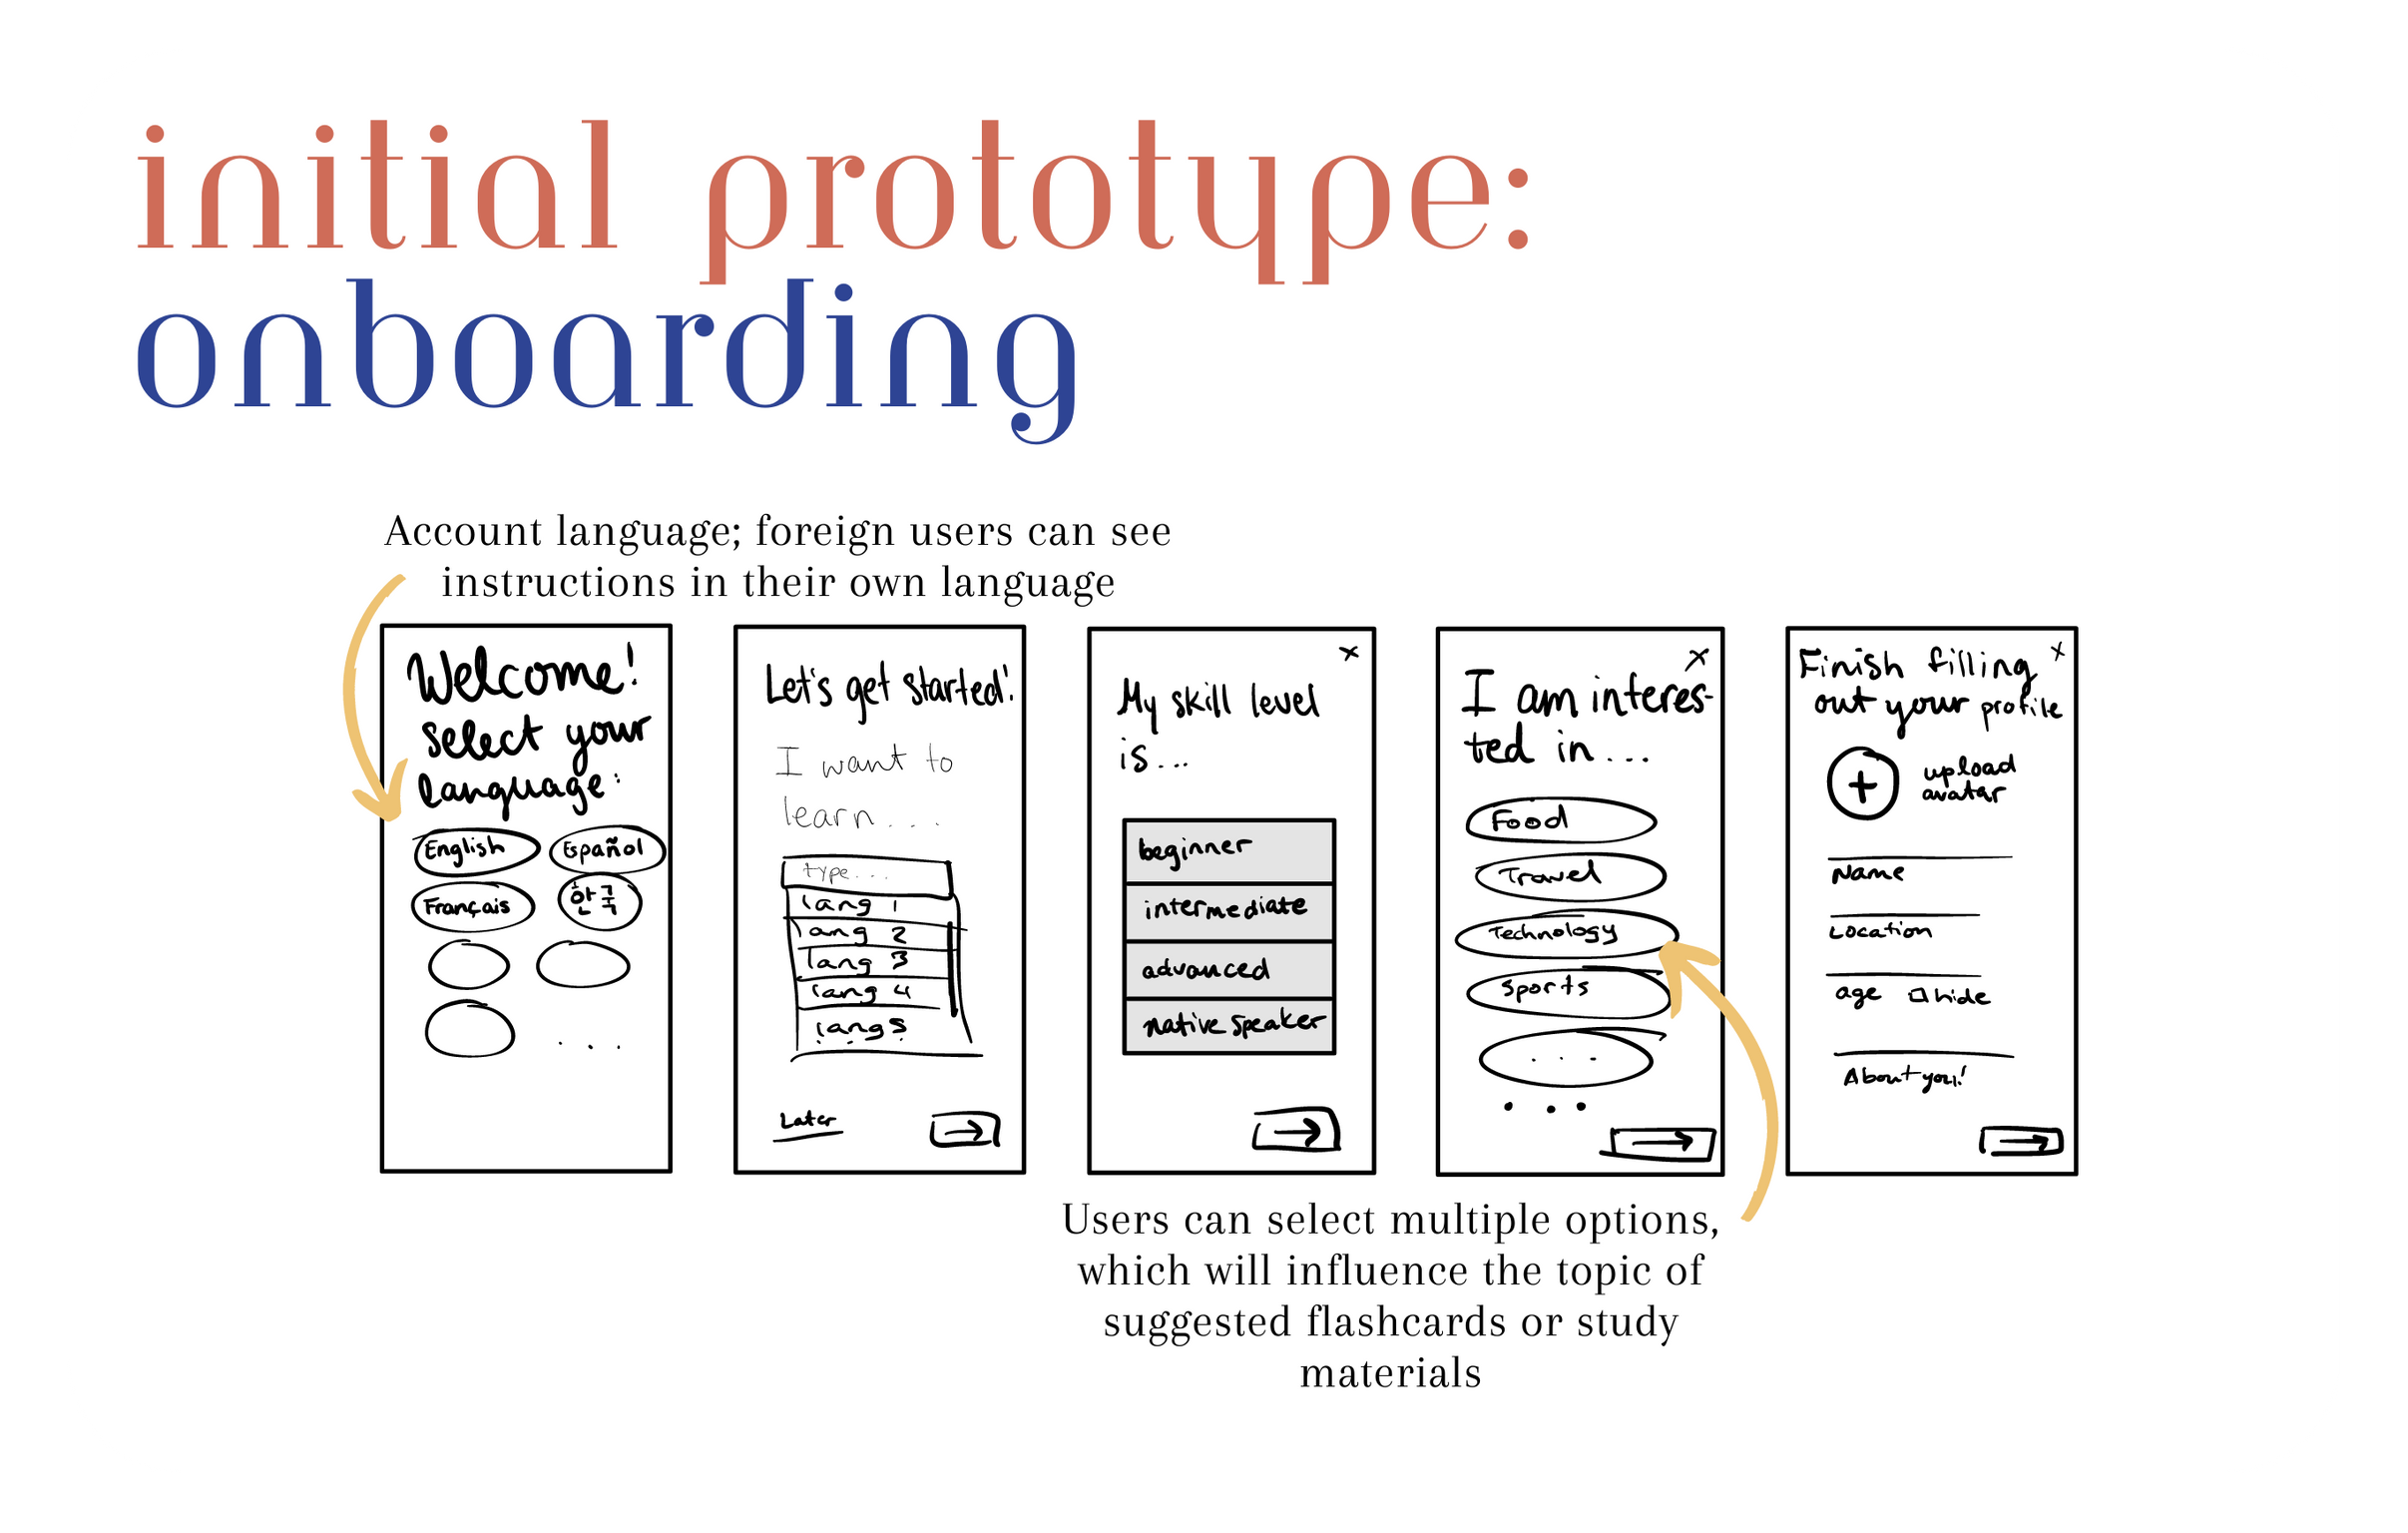 initial prototype:
onboarding
Account language; foreign users can see
instructions in their own language
Welcome!
select your
language:
English
Español
Français
한국
...
Let's get started!
I want to
learn...
type...
lang 1
lang 2
lang 3
lang 4
lang 5
...
Later
→
x
My skill level
is...
beginner
intermediate
advanced
native speaker
→
x
I am interes-
ted in...
Food
Travel
Technology
Sports
...
...
→
Finish filling x
out your profile
+
upload
avatar
Name
Location
age hide
About you!
→
Users can select multiple options,
which will influence the topic of
suggested flashcards or study
materials